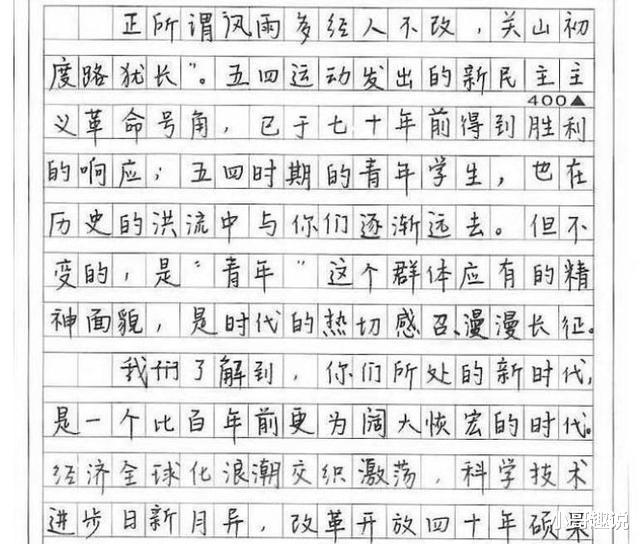 正所谓风雨多经人不改，关山初
度路犹长"。五四运动发出的新民主主
400▲
义革命号角，已于七十年前得到胜利
的响应；五四时期的青年学生，也在
历史的洪流中与你们逐渐远去。但不
变的，是"青年"这个群体应有的精
神面貌，是时代的热切感召、漫漫长征。
我们了解到，你们所处的新时代，
是一个比百年前更为阔大恢宏的时代。
经济全球化浪潮交织激荡，科学技术
进步日新月异，改革开放四十年硕果
小哥趣说